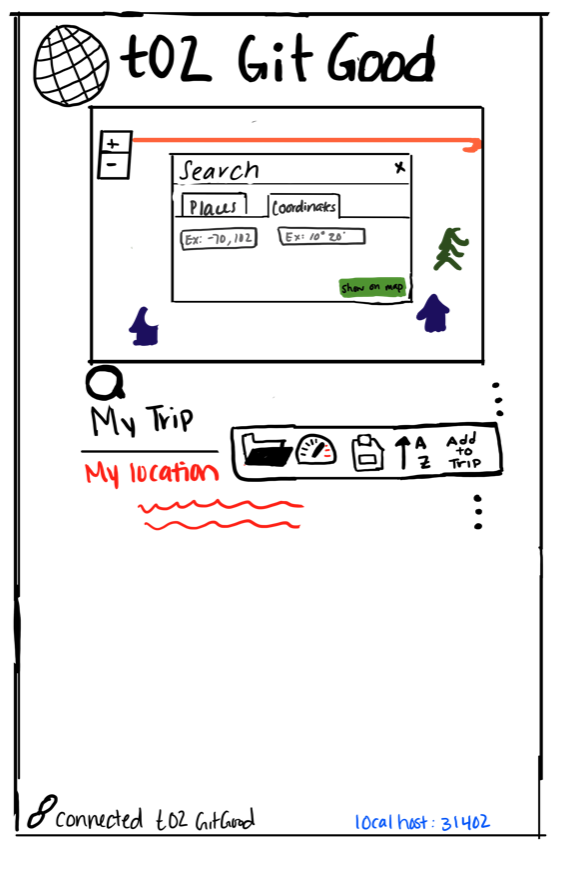 t02 Git Good
+
-
Search x
Places Coordinates
Ex: -70, 102 Ex: 10° 20'
Show on map
My Trip
A
Z
Add
to
Trip
My location
connected t02 GitGood localhost: 31402